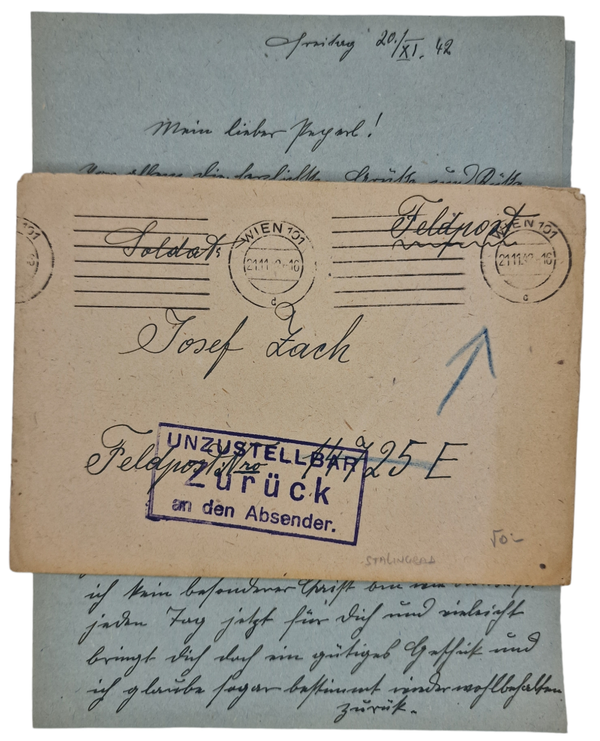 Freitag 20./XI. 42
Mein lieber Peperl!
Vor allem die herzlichsten Grüße und Küsse
WIEN 101
21.11.42-16
WIEN 101
21.11.42-16
Soldat
Feldpost
Josef Zach
Feldpost Nro 44725 E
UNZUSTELLBAR
Zurück
an den Absender.
STALINGRAD
50.-
ich kein besonderer
jeden Tag jetzt für Dich und vieleicht
bringt Dich doch ein gütiges Geschick und
ich glaube sogar bestimmt wieder wohlbehalten
zurük.